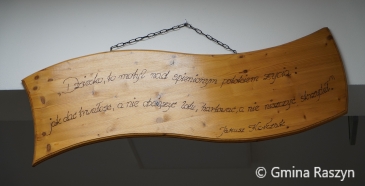 „Dziecko, to motyl nad spienionym potokiem życia...
jak dać trwałość, a nie obciążyć lotu, hartować, a nie niszczyć skrzydeł."
Janusz Korczak
© Gmina Raszyn